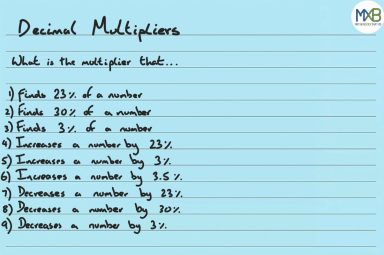 MXB
Decimal Multipliers
What is the multiplier that...
1) Finds 23% of a number
2) Finds 30% of a number
3) Finds 3% of a number
4) Increases a number by 23%
5) Increases a number by 3%
6) Increases a number by 3.5%
7) Decreases a number by 23%
8) Decreases a number by 30%
9) Decreases a number by 3%